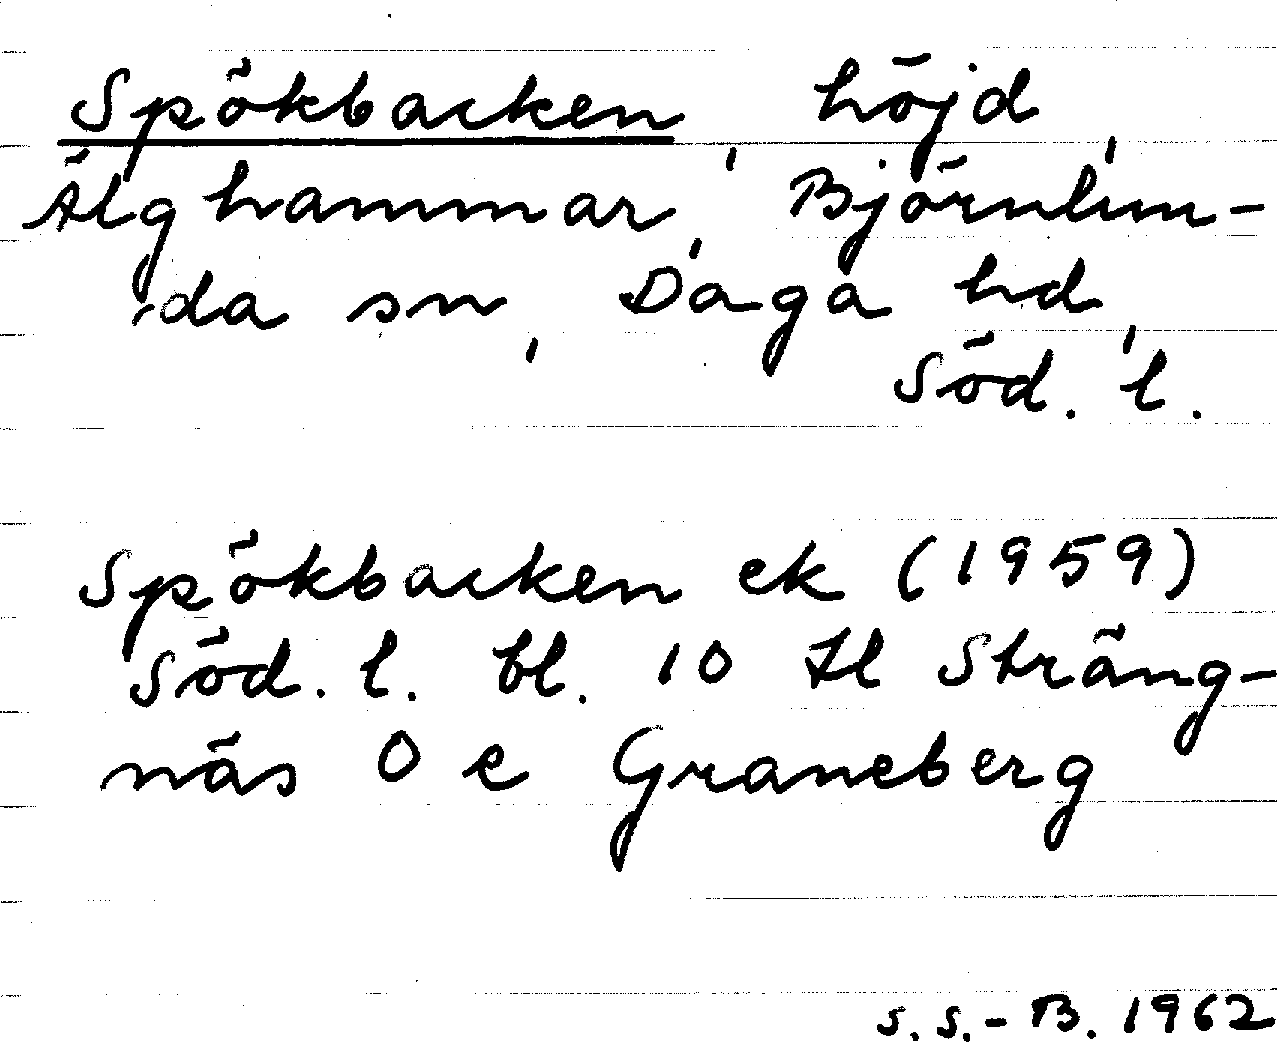 Spökbacken, höjd,
Älghammar, Björnlun-
da sn, Daga hd,
Söd. l.
Spökbacken ek (1959)
Söd. l. bl. 10 tl Sträng-
näs O e Graneberg
S. S.-B. 1962